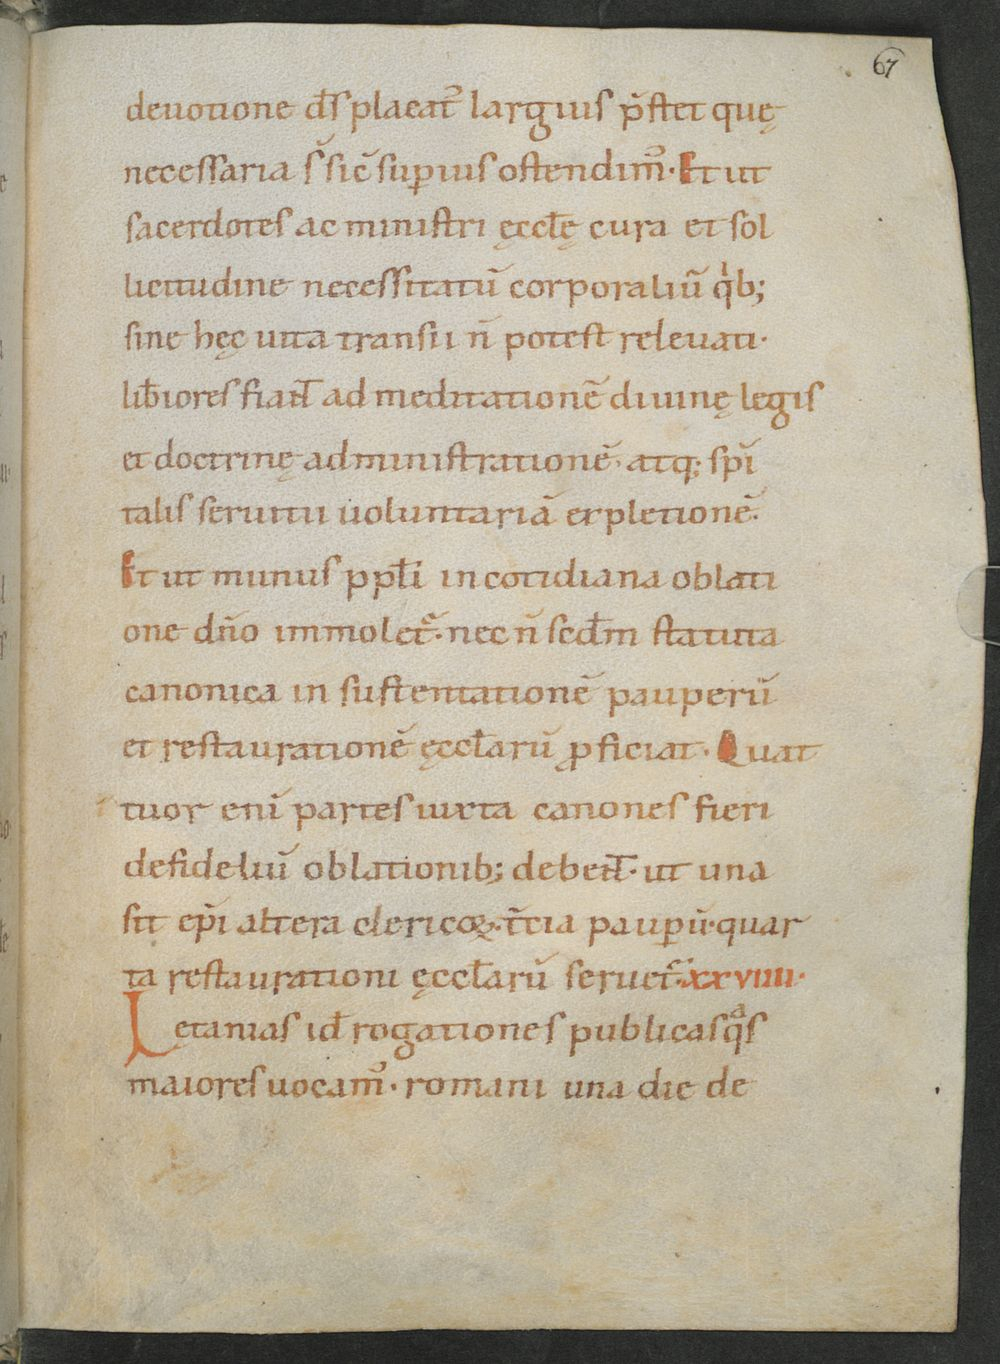 67
deuotione d̄s placat᷒ largius p̄stet quę
necessaria s̄ sic̄ sup̱ius ostendim᷒. Et ut
sacerdotes ac ministri ęccl̄ę cura et sol
licitudine necessitatū corporaliū qͥb;
sine hęc uita transiri n̄ potest releuati.
lib̄iores fiaɴt̄ ad meditationē diuinę legis
et doctrinę administrationē. atq; sp̄i
talis seruitii uoluntariā expletionē.
Et ut munus ppl̄i in cotidiana oblati
one dn̄o immolet᷒. nec n̄ secd̄m statuta
canonica in sustentationē pauperū
et restaurationē ęccl̄arū ꝓficiat. Quat
tuor enī partes iuxta canones fieri
de fideliū oblationib; debeɴt̄. ut una
sit ep̄i altera clericoꝝ. t̄cia paup̱ū. quar
ta restaurationi ęccl̄arū seruet᷒. xxviiii.
Letanias id̄ rogationes publicas qᵃs
maiores uocam᷒. romani una die de